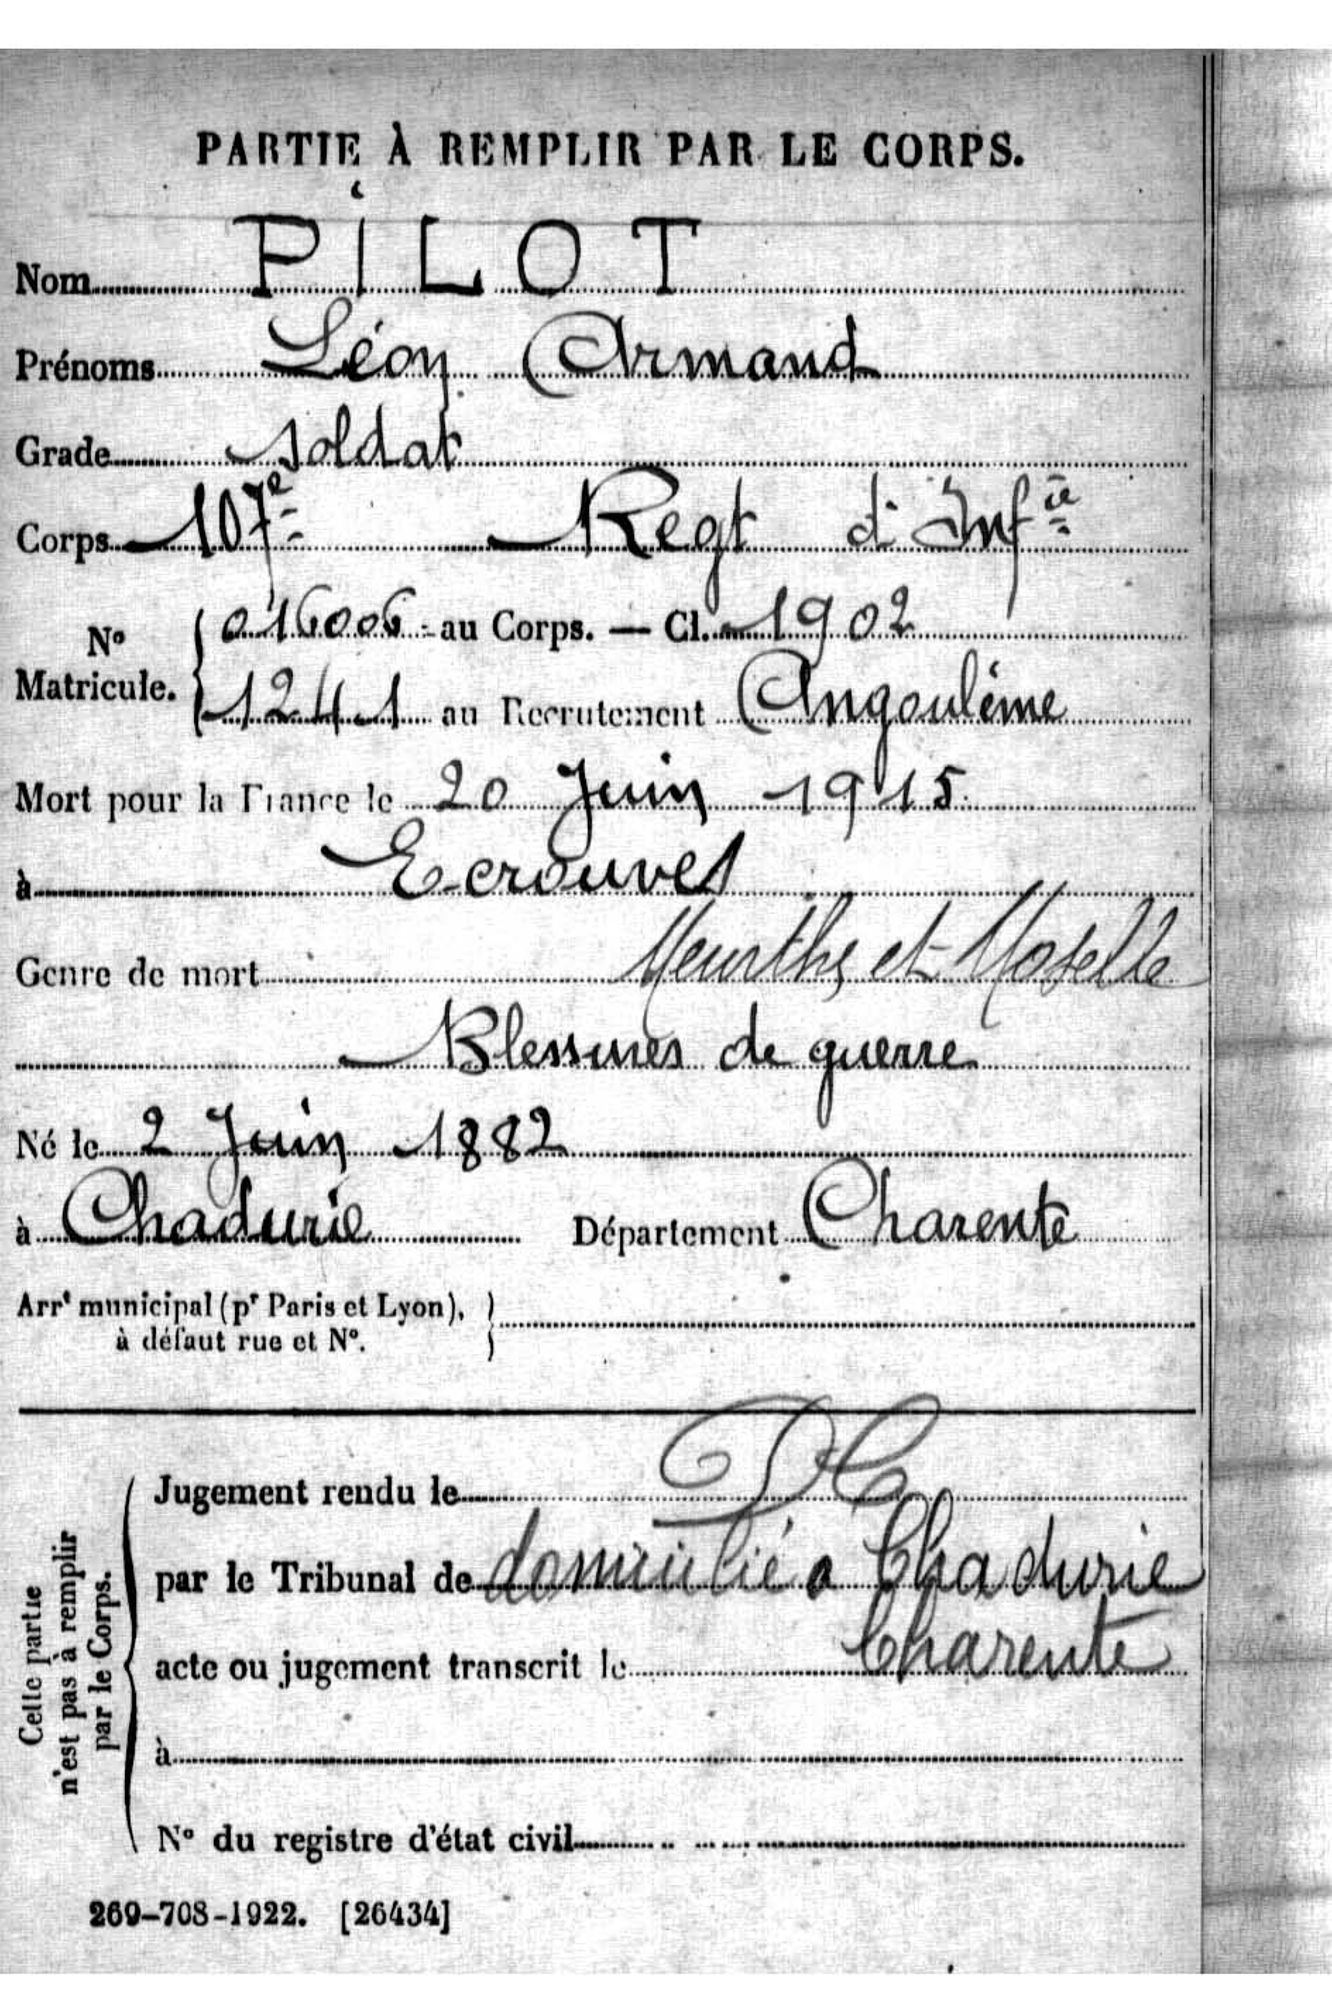 PARTIE À REMPLIR PAR LE CORPS.
Nom PILOT
Prénoms Léon Armand
Grade soldat
Corps 107e Regt d'Infie
No Matricule. 016006 au Corps. — Cl. 1902
1241 au Recrutement Angoulême
Mort pour la France le 20 Juin 1915
à Ecrouves
Meurthe et Moselle
Genre de mort
Blessures de guerre
Né le 2 Juin 1882
à Chadurie Département Charente
Arrt municipal (pr Paris et Lyon),
à défaut rue et No.
Cette partie
n'est pas à remplir
par le Corps.
Jugement rendu le
par le Tribunal de domicilié a Chadurie
Charente
acte ou jugement transcrit le
à
No du registre d'état civil
269-708-1922. [26434]